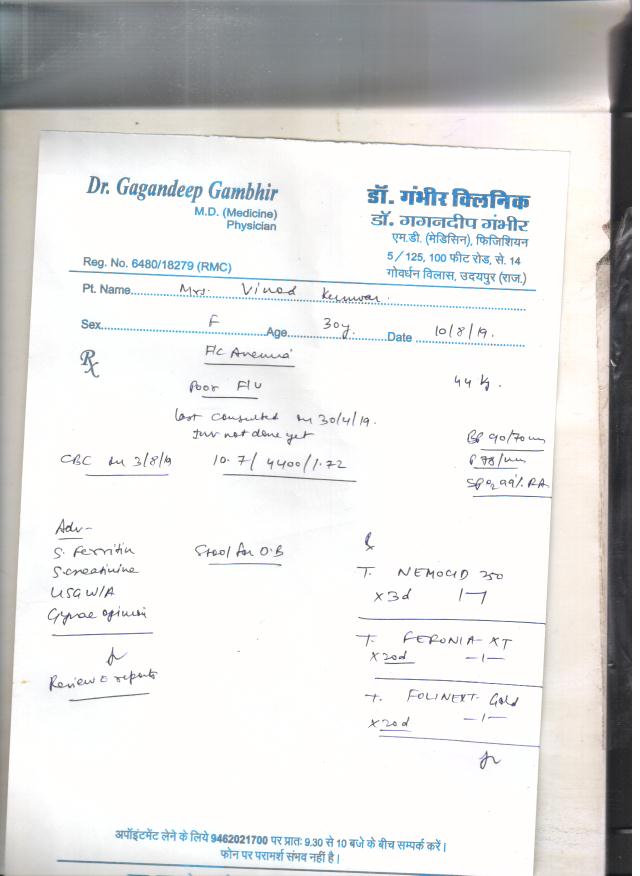 Dr. Gagandeep Gambhir
M.D. (Medicine)
Physician
Reg. No. 6480/18279 (RMC)
डॉ. गंभीर क्लिनिक
डॉ. गगनदीप गंभीर
एम.डी. (मेडिसिन), फिजिशियन
5/125, 100 फीट रोड, से. 14
गोवर्धन विलास, उदयपुर (राज.)
Pt. Name Mrs. Vinod Kunwar.
Sex F Age 30y. Date 10/8/19.
Rx
F/C Anemia
44 kg.
Poor F/U
last consulted on 30/4/19.
not done yet
BP 90/70
P 78/
SPO2 99% RA
CBC on 3/8/19 10.7/4400/1.72
Adv-
S. Ferritin
Stool for O.B
S. creatinine
USG W/A
Gynae opinion
Review c reports
T. NEMOCID 250
x 3d
T. FERONIA-XT
x 20d —1—
T. FOLINEXT Gold
x 20d —1—
अपॉइंटमेंट लेने के लिये 9462021700 पर प्रातः 9.30 से 10 बजे के बीच सम्पर्क करें।
फोन पर परामर्श संभव नहीं है।